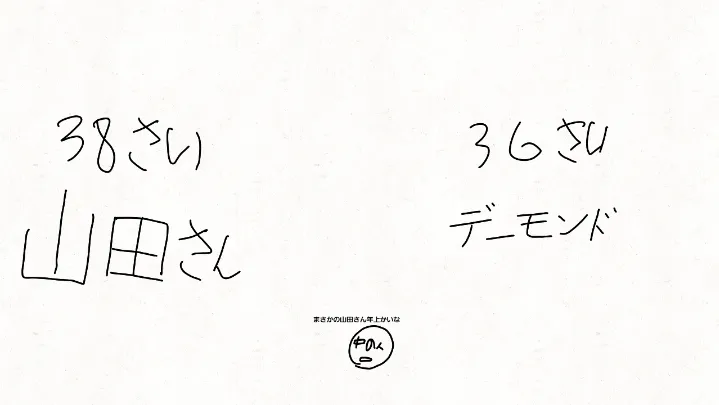 38さい
山田さん
36さい
デーモンド
まさかの山田さん年上かいな
中の人